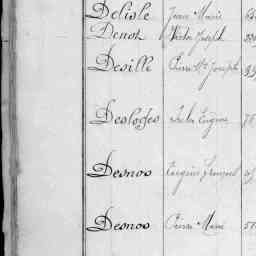 Delisle Jean Marie
Denot Victor Joseph
Deville Pierre Me Joseph
Desloges Jules Eugène
Desnos François
Desnos Pierre Marie